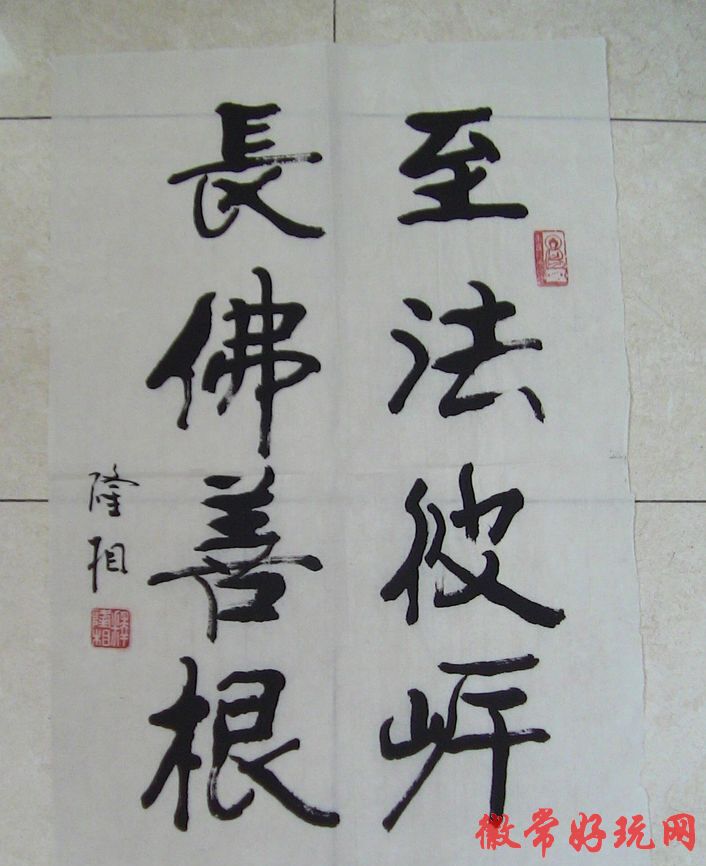 至法彼岸
長佛善根
隆相
徽常好玩网